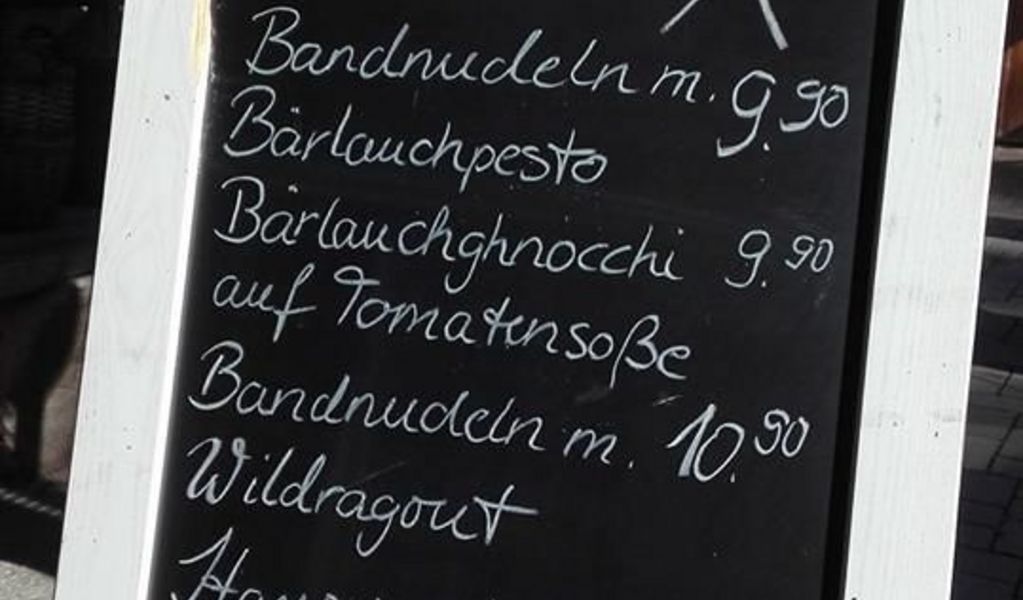 Bandnudeln m. 9.90
Bärlauchpesto
Bärlauchghnocchi 9.90
auf Tomatensoße
Bandnudeln m. 10.90
Wildragout